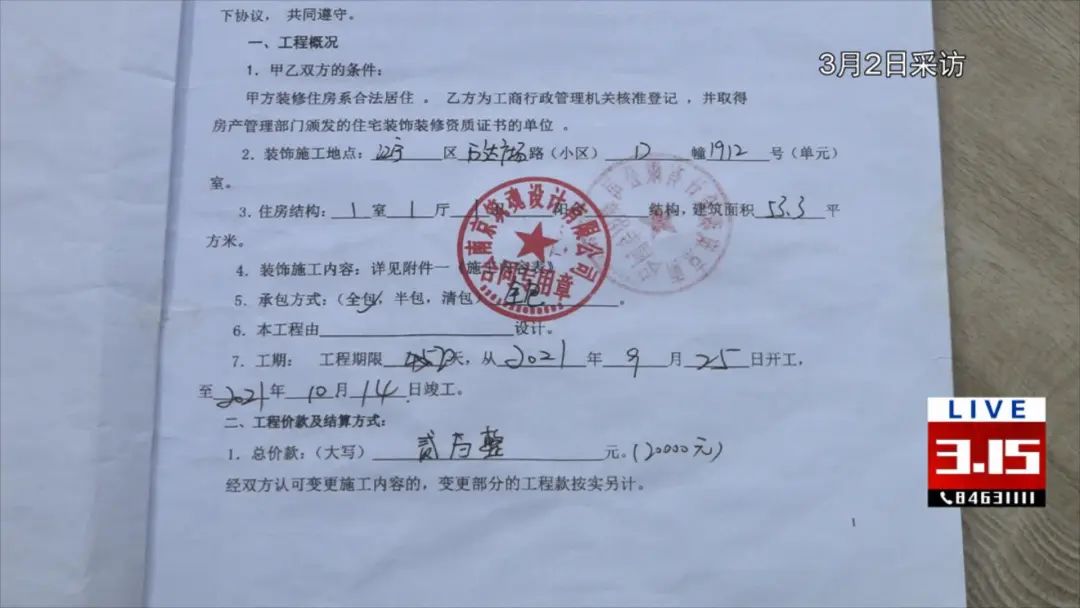 下协议， 共同遵守。
一、工程概况
3月2日采访
1．甲乙双方的条件：
甲方装修住房系合法居住 。 乙方为工商行政管理机关核准登记 ，并取得
房产管理部门颁发的住宅装饰装修资质证书的单位 。
2．装饰施工地点：江宁区万达广场路（小区）D幢1912号（单元）
室。
3．住房结构：1室1厅 结构，建筑面积53.3平
方米。
南京筑魂设计有限公司
合同专用章
4．装饰施工内容：详见附件一《施
5．承包方式：（全包，半包，清包）全包。
6．本工程由 设计。
7．工期： 工程期限 天，从2021年9月25日开工，
至2021年10月14日竣工。
二、工程价款及结算方式：
1．总价款：（大写）贰万整元。（20000元）
经双方认可变更施工内容的，变更部分的工程款按实另计。
1
LIVE
3.15
84631111